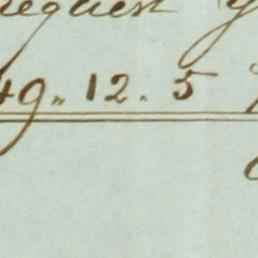 request
49.. 12. 5